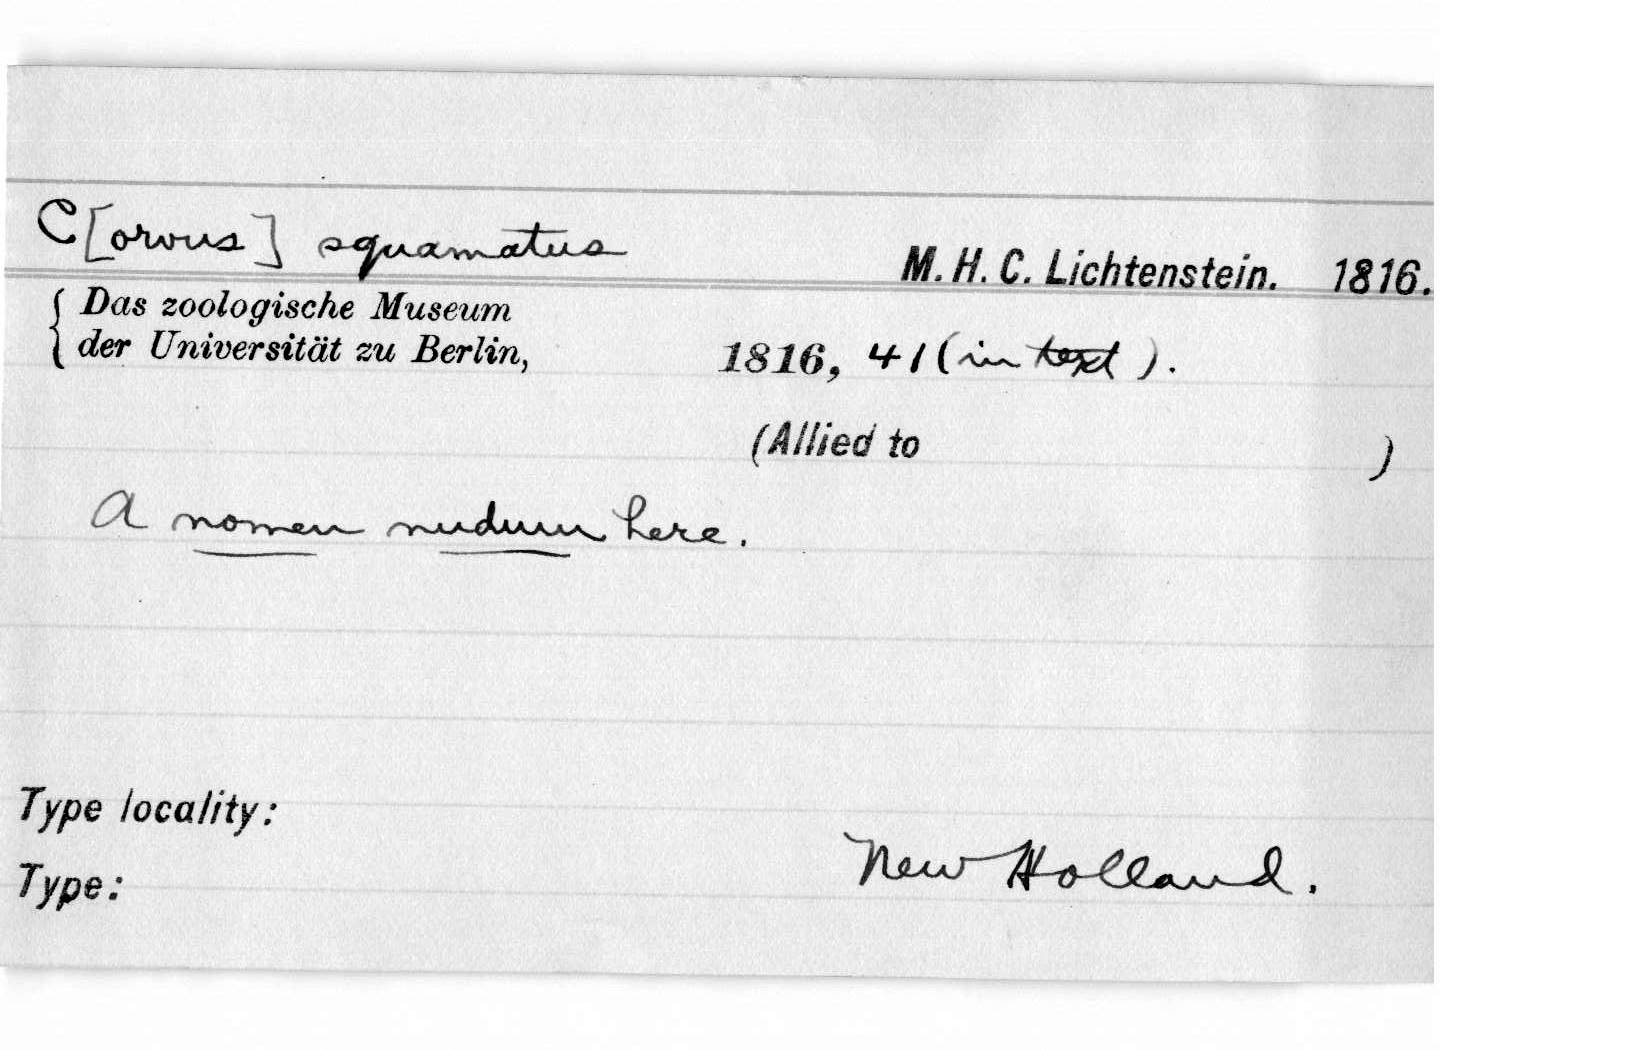 C[orvus] squamatus M. H. C. Lichtenstein. 1816.
{ Das zoologische Museum
der Universität zu Berlin, 1816, 41 (in text).
(Allied to )
A nomen nudum here.
Type locality:
New Holland.
Type: